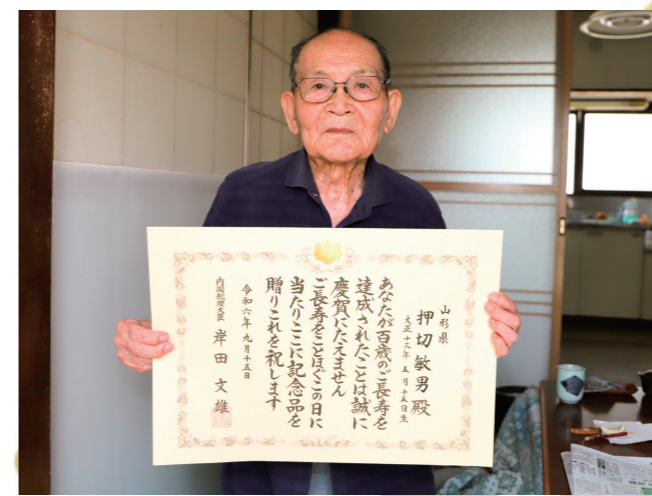 山形県
押切敏男殿
大正十三年 五月十五日生
あなたが百歳のご長寿を
達成されたことは誠に
慶賀にたえません
ご長寿をことほぐこの日に
当たりここに記念品を
贈りこれを祝します
令和六年 九月十五日
内閣総理大臣 岸田文雄